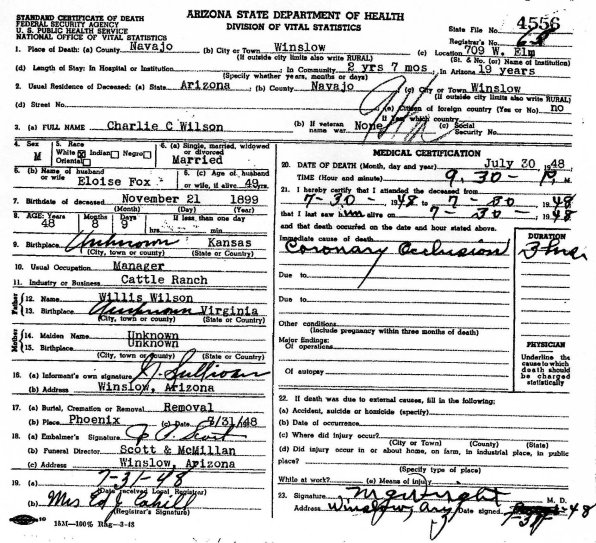 STANDARD CERTIFICATE OF DEATH
FEDERAL SECURITY AGENCY
U. S. PUBLIC HEALTH SERVICE
NATIONAL OFFICE OF VITAL STATISTICS
ARIZONA STATE DEPARTMENT OF HEALTH
DIVISION OF VITAL STATISTICS
State File No. 4556
Registrar's No. 68
1. Place of Death: (a) County Navajo (b) City or Town Winslow (c) Location 709 W. Elm
(If outside city limits also write RURAL) (St. & No. (or) Name of Institution)
(d) Length of Stay: In Hospital or Institution In Community 2 yrs 7 mos, In Arizona 19 years
(Specify whether years, months or days)
2. Usual Residence of Deceased: (a) State Arizona (b) County Navajo (c) City or Town Winslow
(If outside city limits also write RURAL)
(d) Street No. (e) Citizen of foreign country (Yes or No) no
If Yes, which country
3. (a) FULL NAME Charlie C Wilson (b) If veteran name war None (c) Social Security No.
4. Sex M
5. Race White Indian Negro Oriental
6. (a) Single, married, widowed or divorced Married
6. (b) Name of husband or wife Eloise Fox
6. (c) Age of husband or wife, if alive 49 yrs.
7. Birthdate of deceased November 21 1899
(Month) (Day) (Year)
8. AGE: Years 48 Months 8 Days 9 If less than one day hrs. min.
9. Birthplace Unknown Kansas
(City, town or county) (State or Country)
10. Usual Occupation Manager
11. Industry or Business Cattle Ranch
Father
12. Name Willis Wilson
13. Birthplace Unknown Virginia
(City, town or county) (State or Country)
Mother
14. Maiden Name Unknown
15. Birthplace Unknown
(City, town or county) (State or Country)
16. (a) Informant's own signature Sullivan
(b) Address Winslow, Arizona
17. (a) Burial, Cremation or Removal Removal
(b) Place Phoenix (c) Date 7/31/48
18. (a) Embalmer's Signature Scott
(b) Funeral Director Scott & McMillan
(c) Address Winslow, Arizona
19. (a) 7-31-48
(Date received Local Registrar)
(b) Mrs Ed J Cahill
(Registrar's Signature)
15M—100% Rag—3-48
MEDICAL CERTIFICATION
20. DATE OF DEATH (Month, day and year) July 30 48
TIME (Hour and minute) 9.30 P.M.
21. I hereby certify that I attended the deceased from
7-30- 1948 to 7-30- 1948
that I last saw him alive on 7-30- 1948
and that death occurred on the date and hour stated above.
DURATION
Immediate cause of death
Coronary Occlusion 3 hrs.
Due to
Due to
Other conditions
(Include pregnancy within three months of death)
Major findings:
Of operations
Of autopsy
PHYSICIAN
Underline the cause to which death should be charged statistically
22. If death was due to external causes, fill in the following:
(a) Accident, suicide or homicide (specify)
(b) Date of occurrence
(c) Where did injury occur?
(City or Town) (County) (State)
(d) Did injury occur in or about home, on farm, in industrial place, in public place?
(Specify type of place)
While at work? (e) Means of injury
23. Signature M G Wright M. D.
Address Winslow, Date signed 48